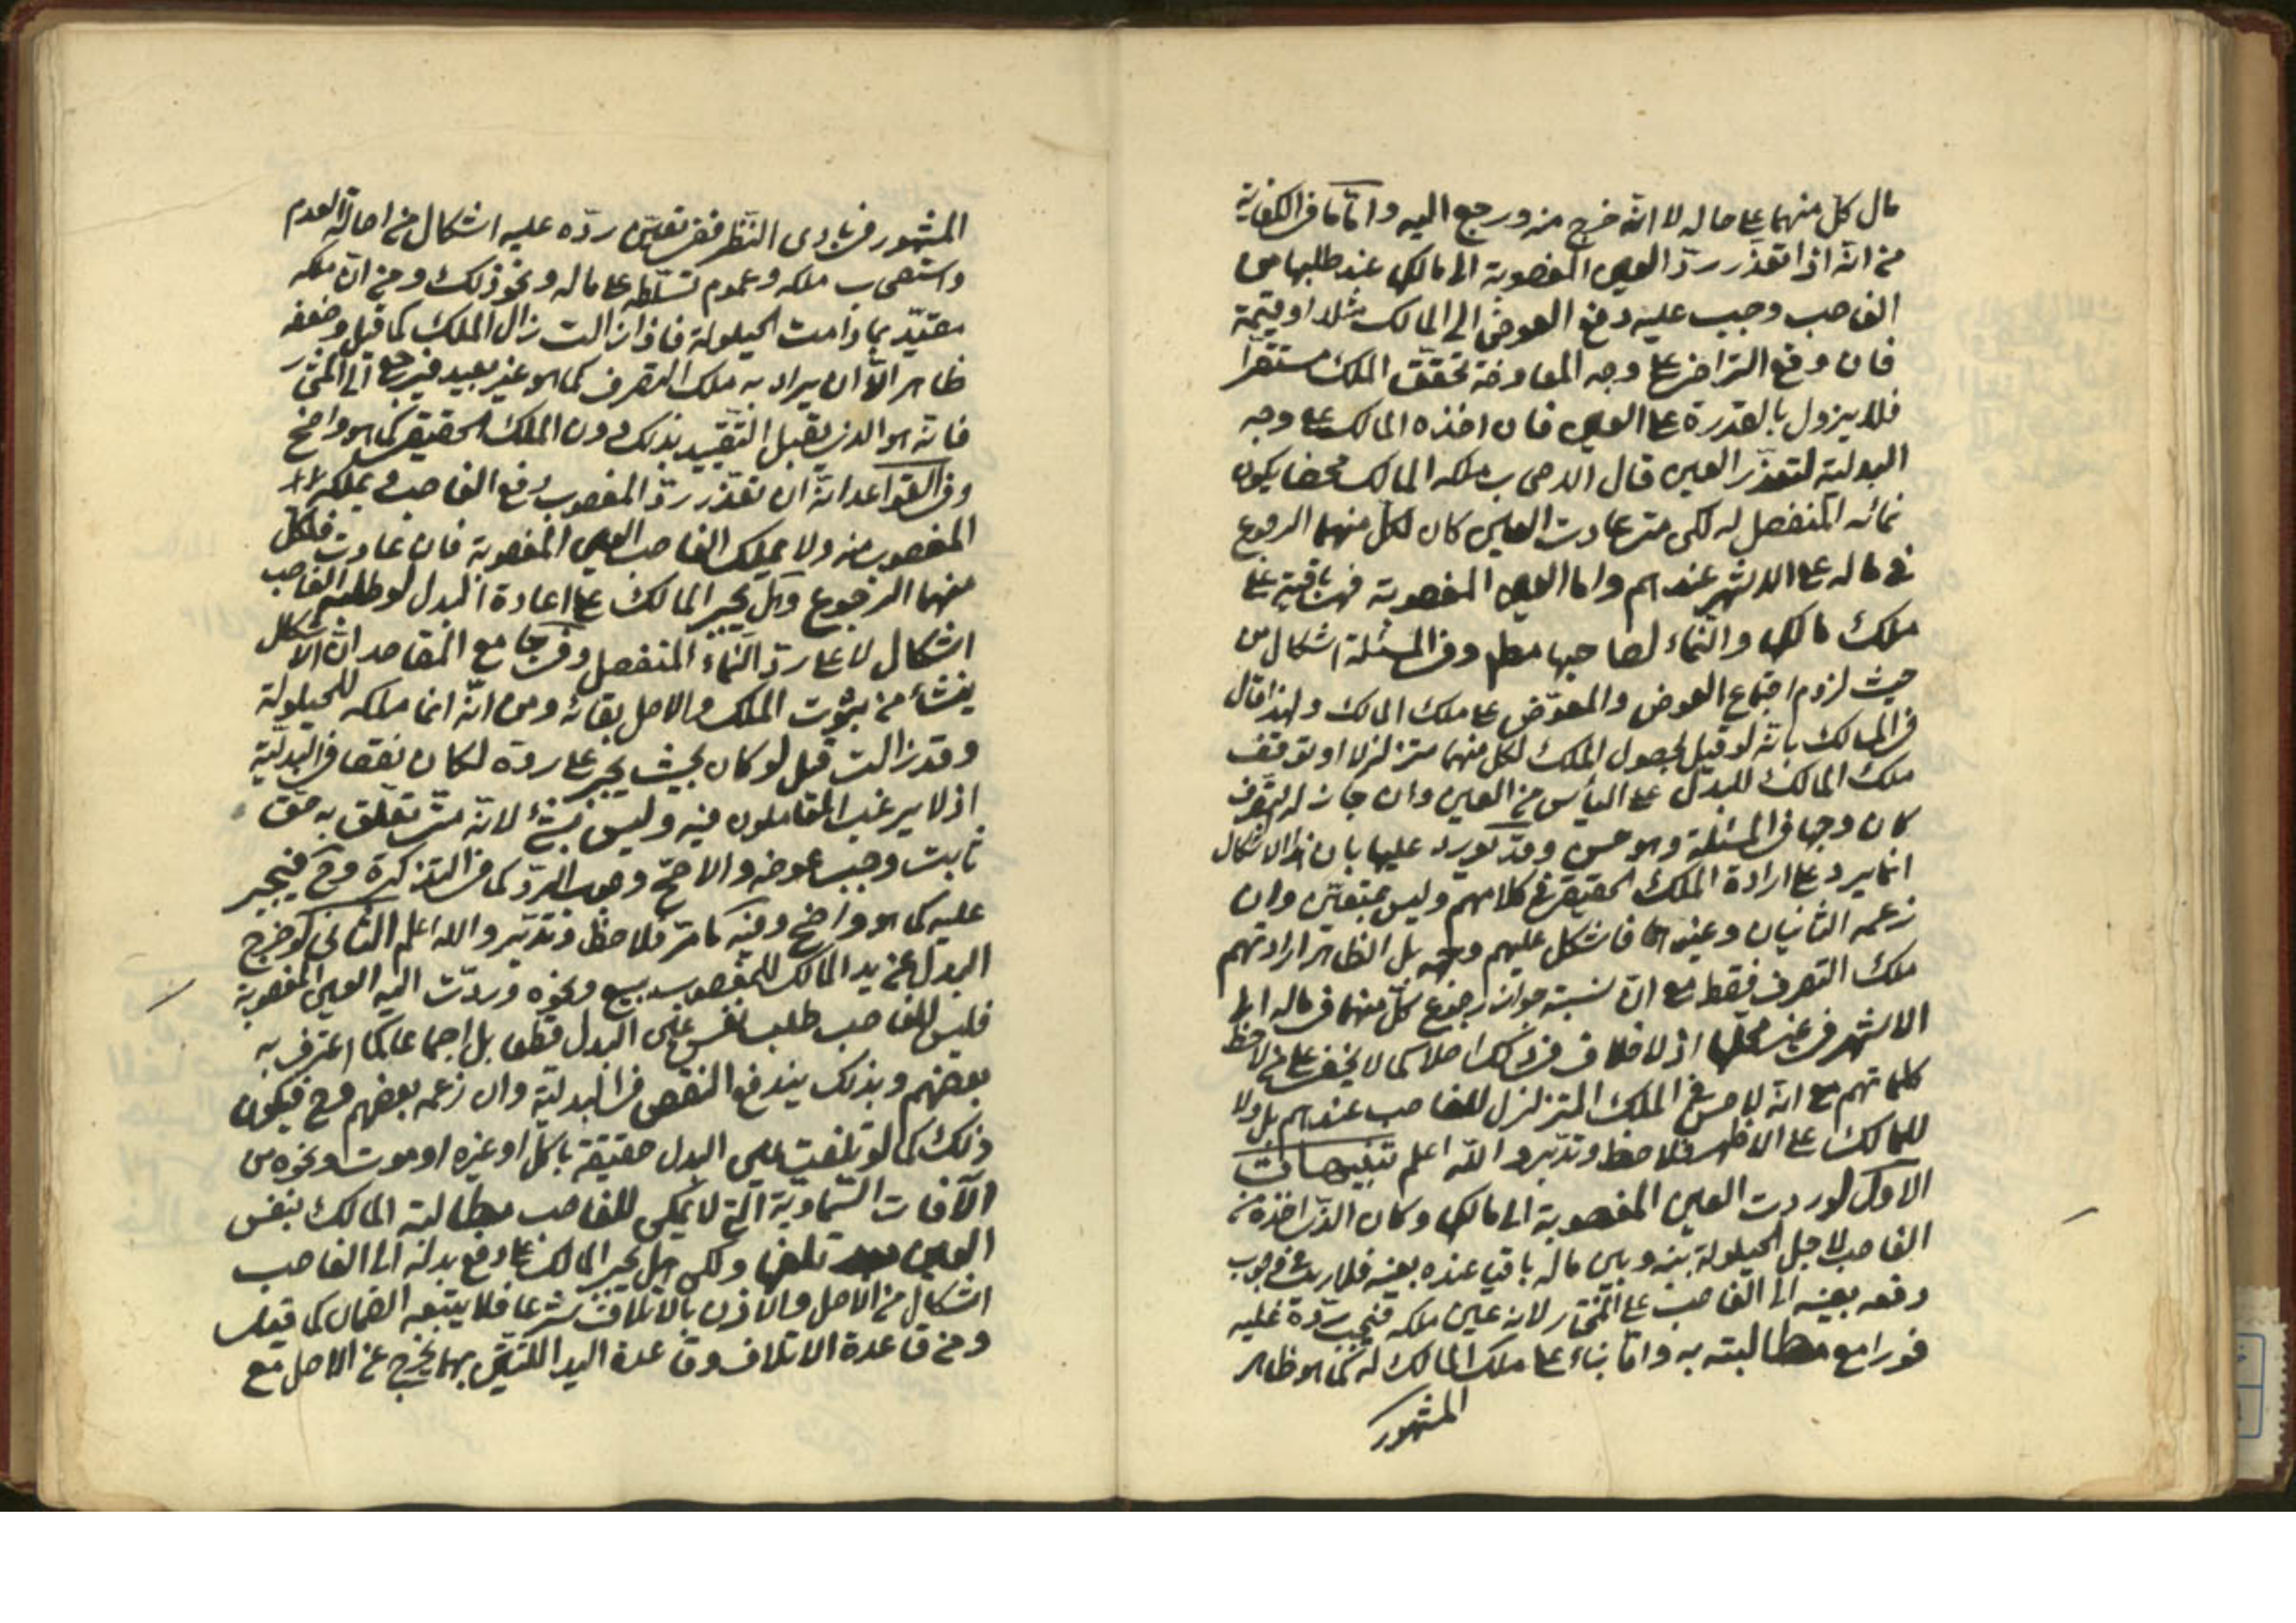 مال كلّ منهما على حاله لا انّه خرج منه ورجع اليه وامّا ما فى الكفاية
من انّه اذا تعذّر ردّ العين المغصوبة الى مالكها عند طلبها من
الغاصب وجب عليه دفع العوض الى المالك مثلا او قيمة
فان وقع التراضى على وجه المعاوضة تحقّق الملك مستقرّا
فلا يزول بالقدرة على العين فان اخذه المالك على وجه
البدلية لتعذّر العين قال الاصحاب ملكه المالك محضا يكون
نمائه المنفصل له لكن متى عادت العين كان لكلّ منهما الرجوع
فى ماله على الاشهر عندهم واما العين المغصوبة فهى باقية على
ملك مالكها والنّماء لصاحبها مطم وفى المسئلة اشكال من
حيث لزوم اجتماع العوض والمعوّض على ملك المالك ولهذا قال
فى المسالك بانّه لو قيل بحصول الملك لكل منهما متزلزلا او توقف
ملك المالك للبدل على اليأس من العين وان جاز له التصرف
كان وجها فى المسئلة وهو حسن وقد يورد عليها بان هذا الاشكال
انما يرد على ارادة الملك الحقيقى فى كلامهم وليس بمتعيّن وان
زعمه الثانيان وغيرهما فاشكل عليهم وجهه بل الظاهر ارادتهم
ملك التصرف فقط مع انّ نسبته جواز رجوع كلّ منهما فى ماله الى
الاشهر فى غير محلّها اذ لا خلاف فى ذلك اصلا كما لا يخفى على من لاحظ
كلماتهم مع انّه لا معنى الملك المتزلزل للغاصب عندهم بل ولا
للمالك على الاظهر فلاحظ وتدبّر والله اعلم تنبيهات
الاوّل لو ردت العين المغصوبة الى مالكها وكان الذى اخذه من
الغاصب لاجل الحيلولة بينه وبين ماله باقيا عنده بعينه فلا ريب فى وجوب
دفعه بعينه الى الغاصب على المختار لانه عين ملكه فيجب ردّه عليه
فورا مع مطالبته به وامّا بناء على ملك المالك له كما هو ظاهر
المشهور
المشهور فى بادى النّظر ففى تعيّن ردّه عليه اشكال من اصالة العدم
واستصحاب ملكه وعموم تسلّطه على ماله ونحو ذلك ومن انّ ملكه
مقيّد بما دامت الحيلولة فاذا زالت زال الملك كما قيل وضعفه
ظاهر الّا ان يراد به ملك التصرف كما هو غير بعيد فيرجع الى المختار
فانّه هو الذى يقبل التّقييد بذلك دون الملك الحقيقى كما هو واضح
وفى القواعد انّه ان تعذّر ردّ المغصوب دفع الغاصب ويملكه
المغصوب منه ولا يملك الغاصب العين المغصوبة فان عادت فلكلّ
منهما الرجوع وهل يجبر المالك على اعادة البدل لو طلبه الغاصب
اشكال لا على ردّ النّماء المنفصل وفى جامع المقاصد انّ الاشكال
ينشأ من ثبوت الملك والاصل بقائه ومن انّه انما ملكه للحيلولة
وقد زالت قيل لو كان بحيث يجبر على ردّه لكان نقصا فى البدليّة
اذ لا يرغب المعاملون فيه وليس بشئ لانّه متى تعلّق به حقّ
ثابت وجب عوضه والاصحّ وجوب الردّ كما فى التذكرة وح فيجبر
عليه كما هو واضح وفيه ما مرّ فلاحظ وتدبّر والله اعلم الثانى لو خرج
البدل عن يد المالك للمغصوب ببيع ونحوه وردّت اليه العين المغصوبة
فليس للغاصب طلب نفس عين البدل قطعا بل اجماعا كما اعترف به
بعضهم وبذلك يندفع النقص فى البدليّة وان زعمه بعضهم وح فيكون
ذلك كما لو تلفت عين البدل حقيقة باكل او غيره او موت ونحوه من
الآفات السّماويّة الّتى لا يمكن للغاصب مطالبة المالك بنفس
العين تلفها ولكن هل يجبر المالك على دفع بدله الى الغاصب
اشكال من الاصل والاذن بالاتلاف شرعا فلا يتبعه الضمان كما قيل
ومن قاعدة الاتلاف وقاعدة اليد اللّتين بهما يخرج عن الاصل مع